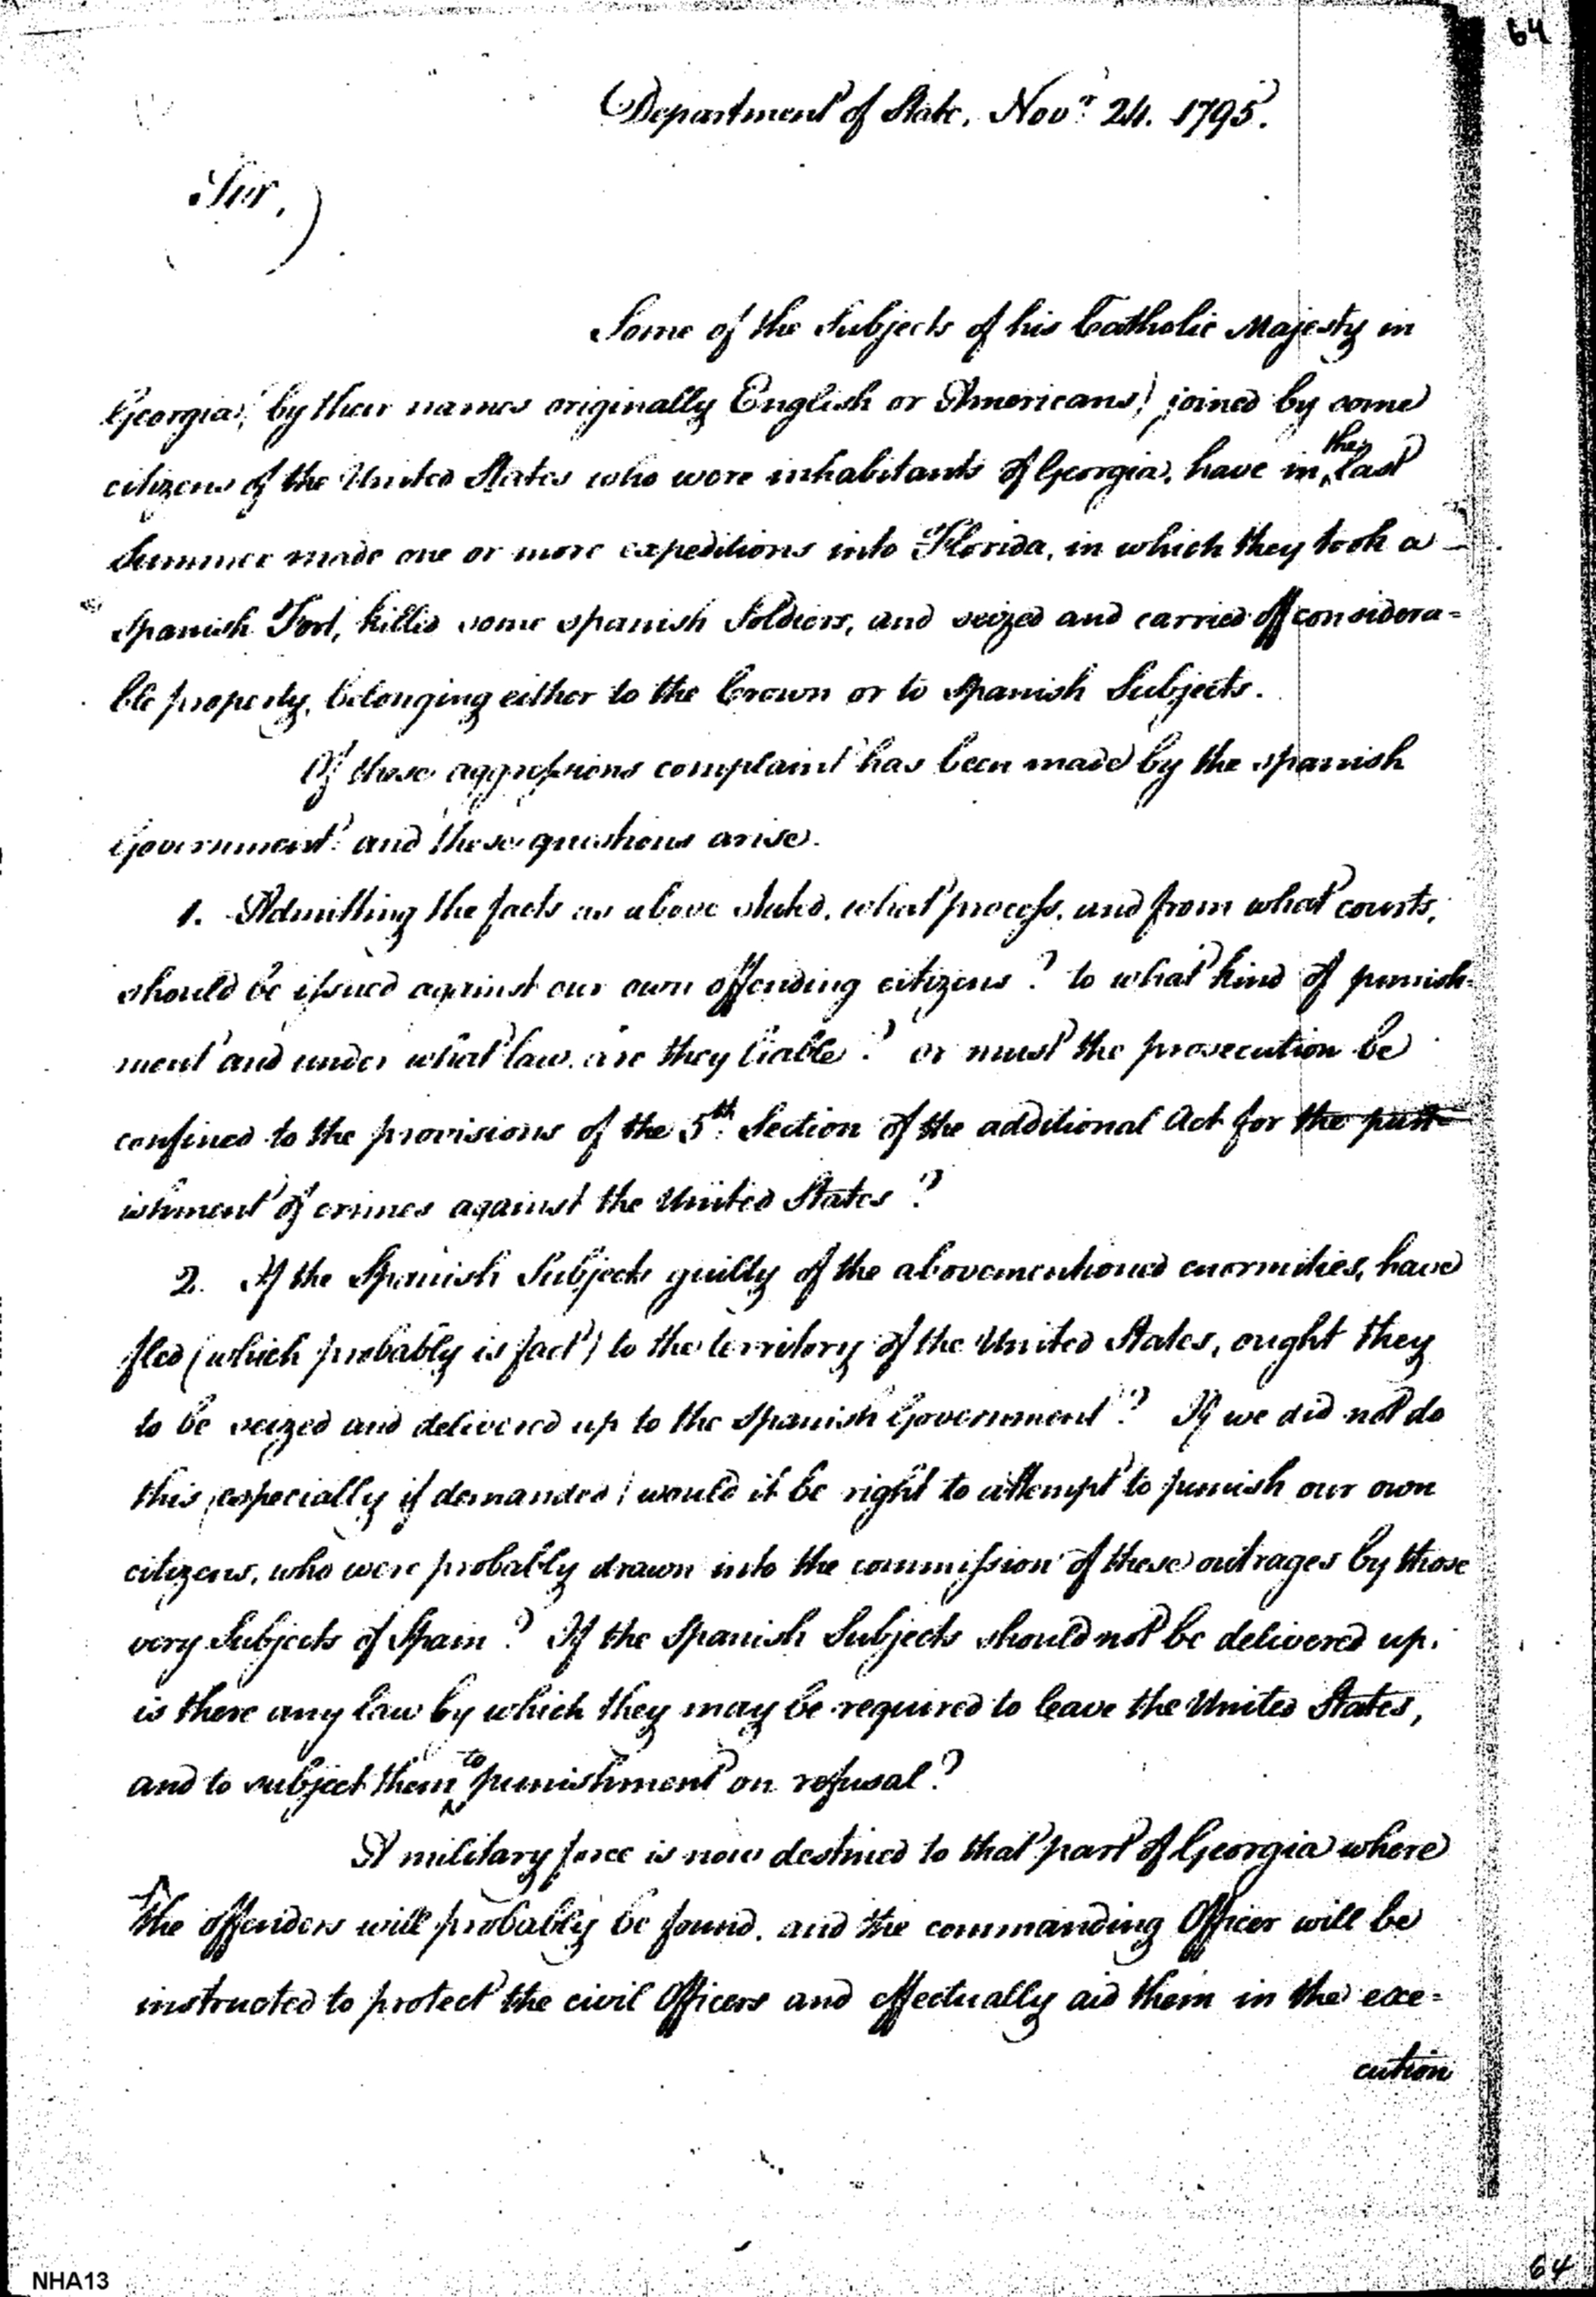 64
Department of State, Nov.r 24. 1795.
Sir,
Some of the Subjects of his Catholic Majesty in
Georgia, (by their names originally English or Americans) joined by some
citizens of the United States who were inhabitants of Georgia, have in the last
Summer made one or more expeditions into Florida, in which they took a
Spanish Fort, killed some Spanish Soldiers, and seized and carried off considera=
ble property, belonging either to the Crown or to Spanish Subjects.
Of these aggressions complaint has been made by the Spanish
Government: and these questions arise.
1. Admitting the facts as above stated, what process, and from what courts,
should be issued against our own offending citizens? to what kind of punish-
ment and under what law are they liable? or must the prosecution be
confined to the provisions of the 5th. Section of the additional Act for the pun=
ishment of crimes against the United States?
2. If the Spanish Subjects guilty of the abovementioned enormities, have
fled (which probably is fact) to the territory of the United States, ought they
to be seized and delivered up to the Spanish Government? If we did not do
this (especially if demanded) would it be right to attempt to punish our own
citizens, who were probably drawn into the commission of these outrages by those
very Subjects of Spain? If the Spanish Subjects should not be delivered up,
is there any law by which they may be required to leave the United States,
and to subject them to punishment on refusal?
A military force is now destined to that part of Georgia where
the offenders will probably be found, and the commanding Officer will be
instructed to protect the civil Officers and effectually aid them in the exe=
cution
NHA13
64